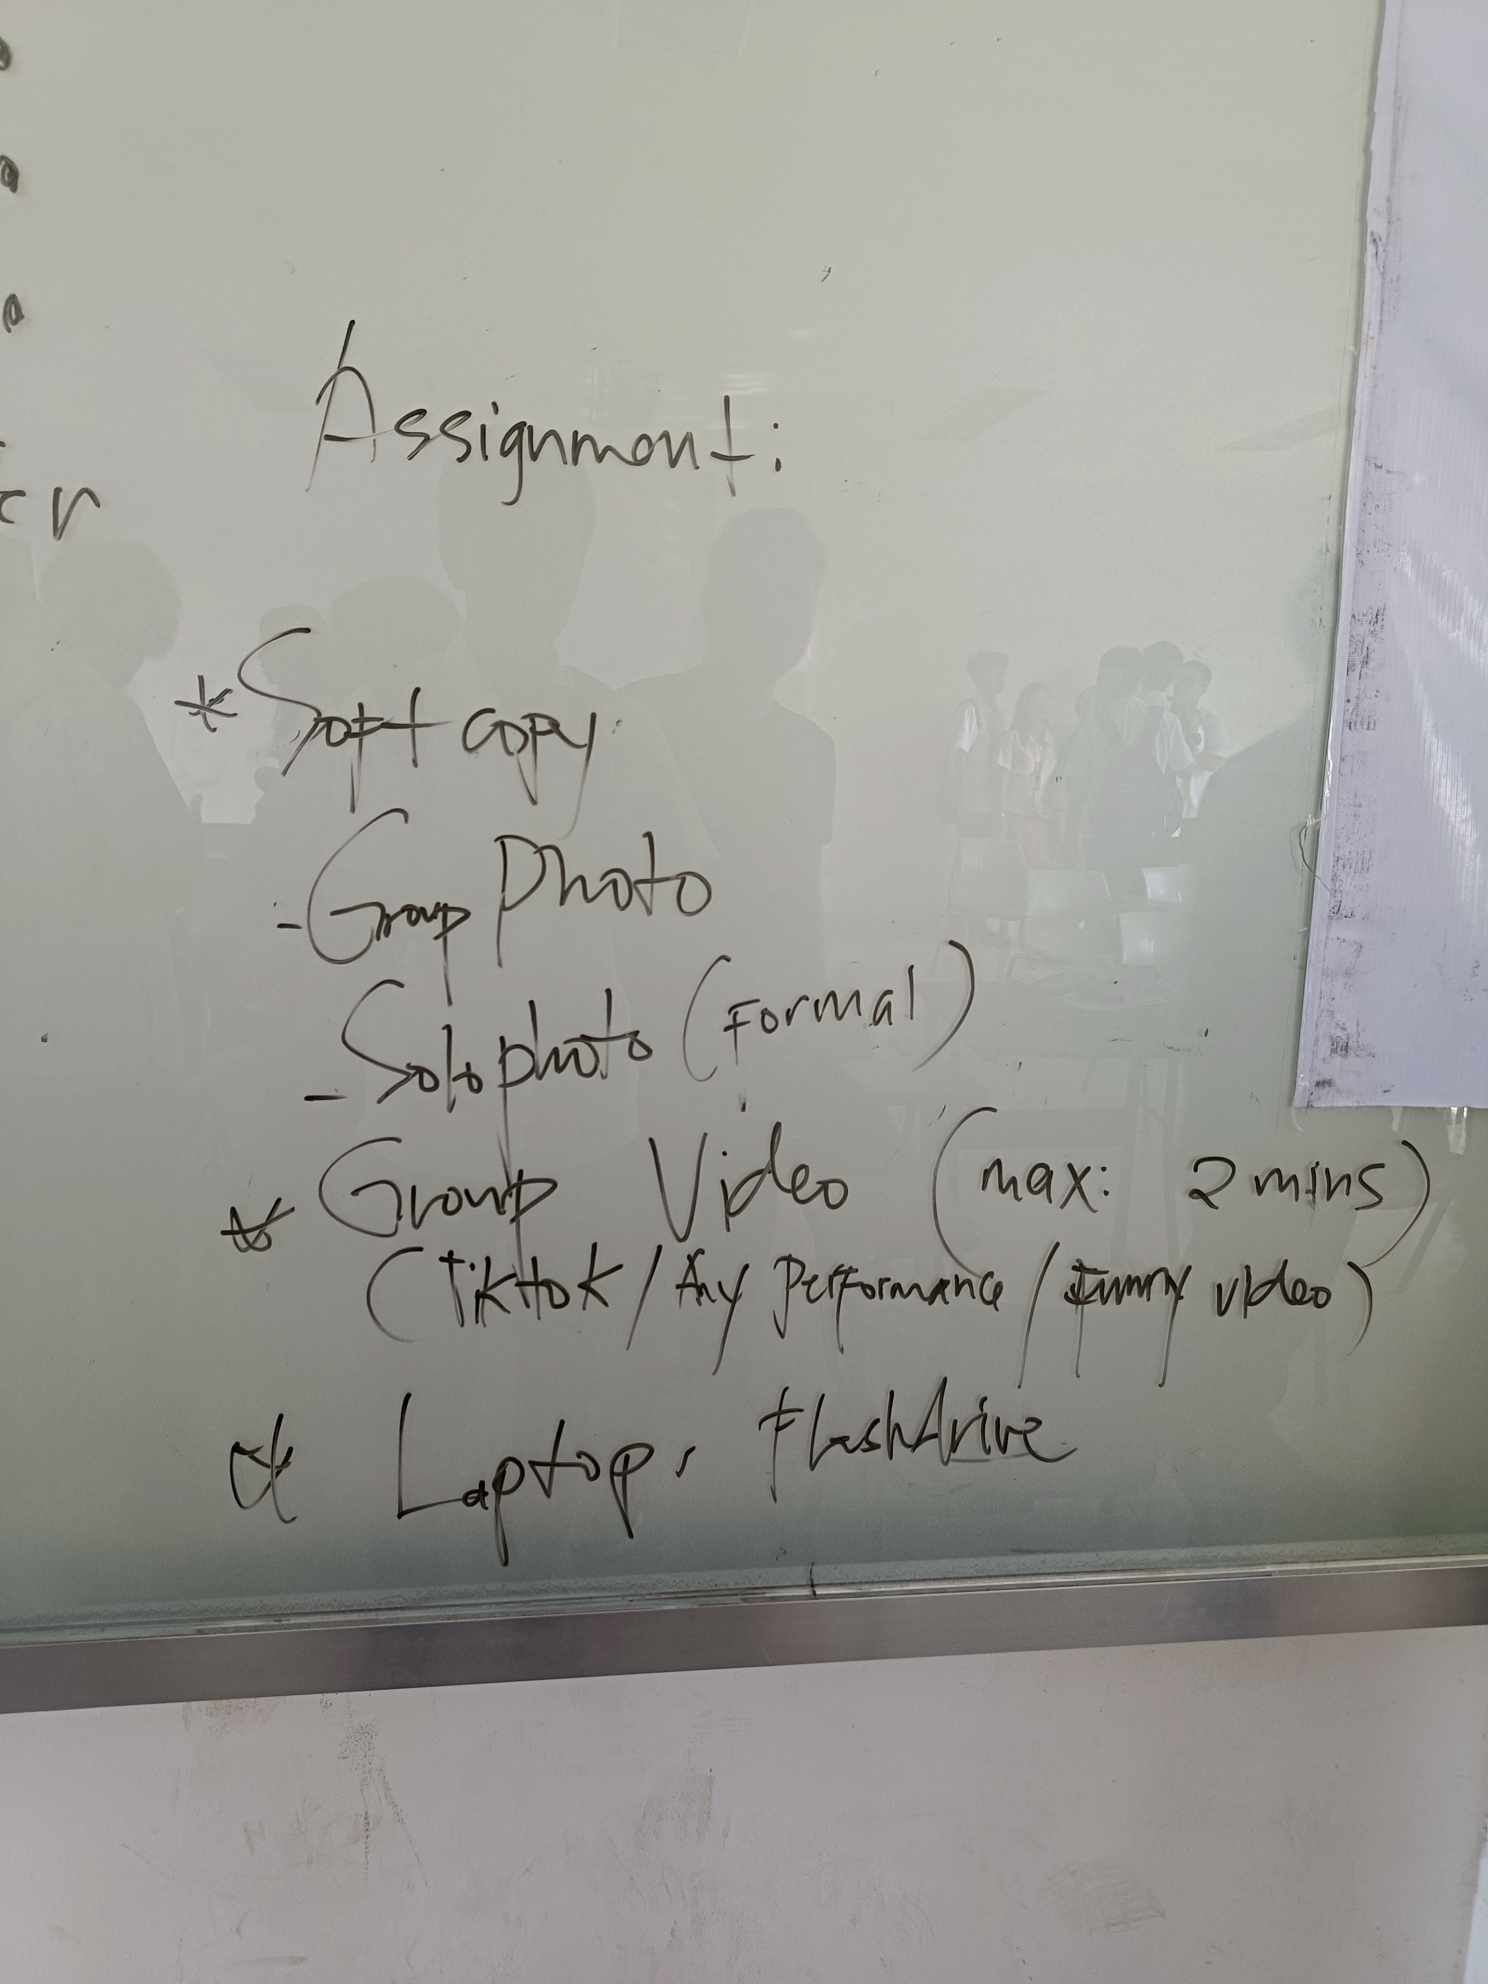 Assignment:
* Soft copy
- Group Photo
- Solo photo (Formal)
* Group Video (max: 2 mins)
(Tiktok / Any Performance / Funny video)
* Laptop, Flashdrive